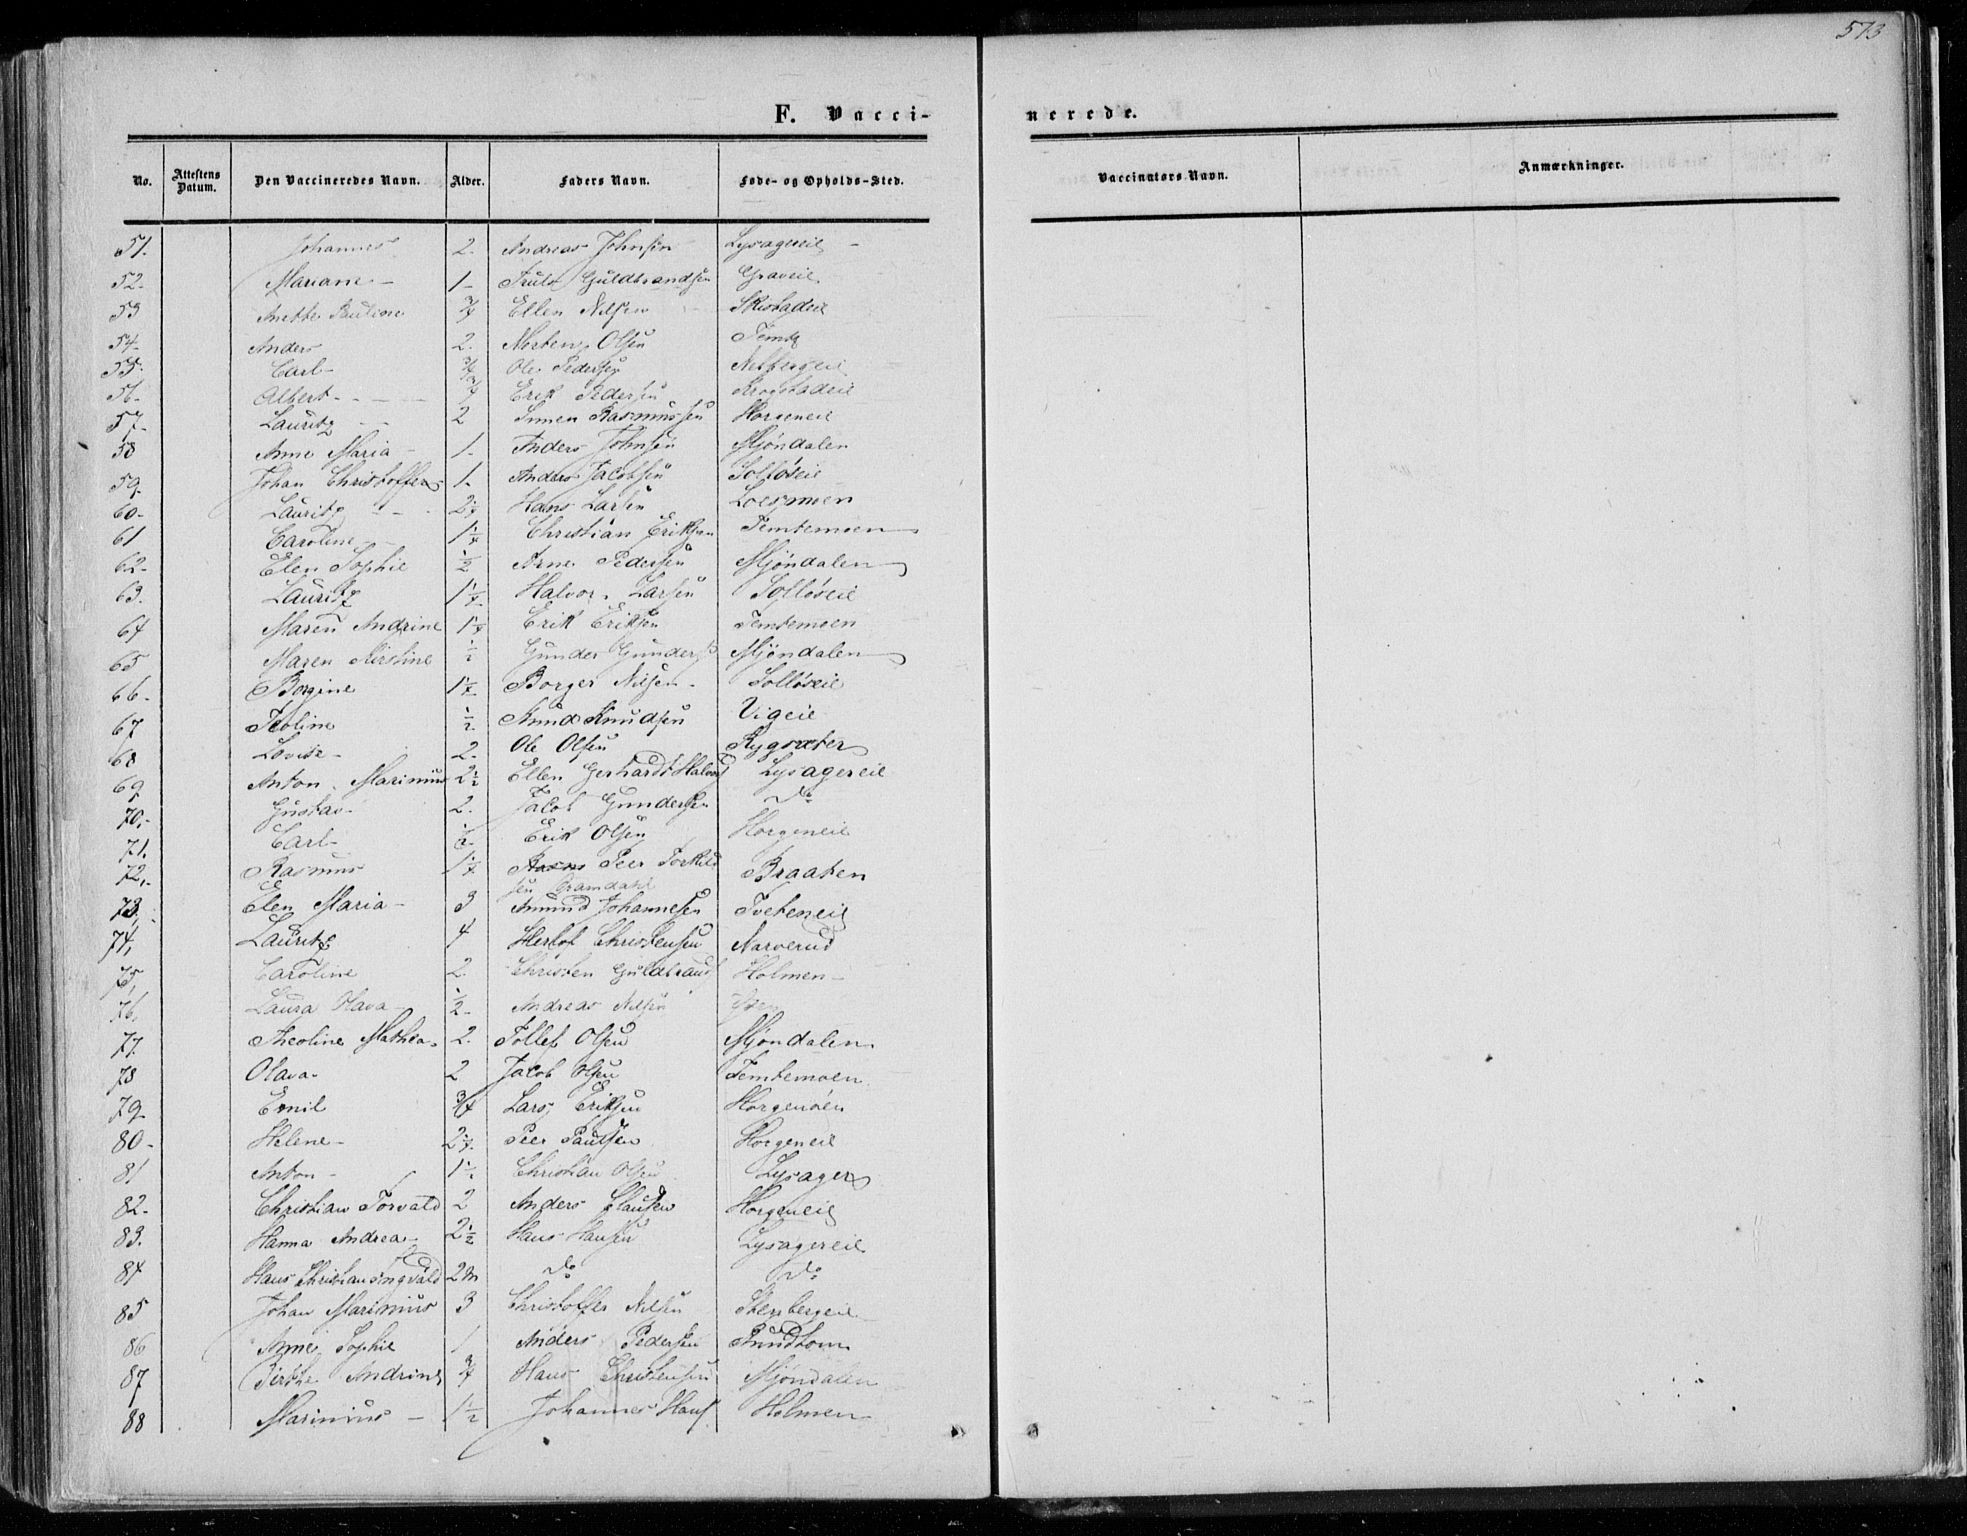 573
F. Vaccinerede.
No. Attestens Datum. Den Vaccineredes Navn. Alder. Faders Navn. Føde- og Opholds-Sted. Vaccinators Navn. Anmærkninger.
51. Johannes 2. Andreas Johnsen Lysagereie
52. Mariane 1 Truls Guldbrandsen Graveie
53 Anette Pauline 3/4 Ellen Nilsen Skistadeie
54. Anders 2. Morten Olsen Temte
55. Carl 3/4 Ole Pedersen
56. Albert 3/4 Erik Pedersen Krogstadeie
57. Lauritz 2 Simen Rasmussen Horgeneie
58 Anne Maria 1. Anders Johnsen Mjøndalen
59. Johan Christoffer 1. Anders Jacobsen Solløseie
60. Lauritz Hans Larsen Loesmoen
61 Caroline Christian Eriksen Temtemoen
62. Elen Sophie 1/2 Arne Pedersen Mjøndalen
63. Lauritz Halvor Larsen Solløseie
64 Maren Andrine Erik Eriksen Temtemoen
65 Maren Kirstine 1/2 Gunder Gunders Mjøndalen
66. Borgine Borger Nilsen Solløseie
67 Teoline 1/2 Knudsen Vigeie
68 Lovise 2. Ole Olsen Rygsæter
69 Anton Marinius 2 1/2 Ellen Gerhardt Halvors Lysagereie
70. Gustav 2. Jacob Gundersen do
71. Carl Erik Olsen Horgeneie
72. Rasmus Peer Torkild
sen Gramdahl Braaten
73. Elen Maria 3 Amund Johannesen Tveteneie
74. Lauritz 4 Herlof Christensen Narverud
75. Caroline 2. Christen Guldbrands Holmen
76. Laura Olava 1/2 Andreas Nilsen
77. Theoline Mathea 2. Tollef Olsen Mjøndalen
78 Olava 2 Jacob Olsen Temtemoen
79. Emil 3/4 Lars Eriksen Horgenøen
80. Helene Peer Paulsen Horgeneie
81 Anton 1 1/2 Christian Olsen Lysager
82. Christian Torvald 2 Anders Clausen Horgeneie
83. Hanna Andrea 2 1/2 Hans Hansen Lysagereie
84 Hans Christian Ingvald 2 m do do
85 Johan Marinius 3 Christoffer Nilsen Stenbergeie
86 Anne Sophie 1 Anders Pedersen
87 Birthe Andrine 3/4 Hans Christensen Mjøndalen
88 Marinius 1 1/2 Johannes Hans Holmen